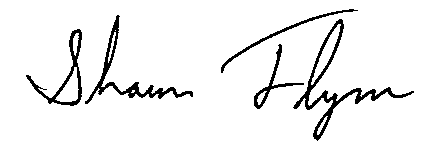 Shawn Flynn